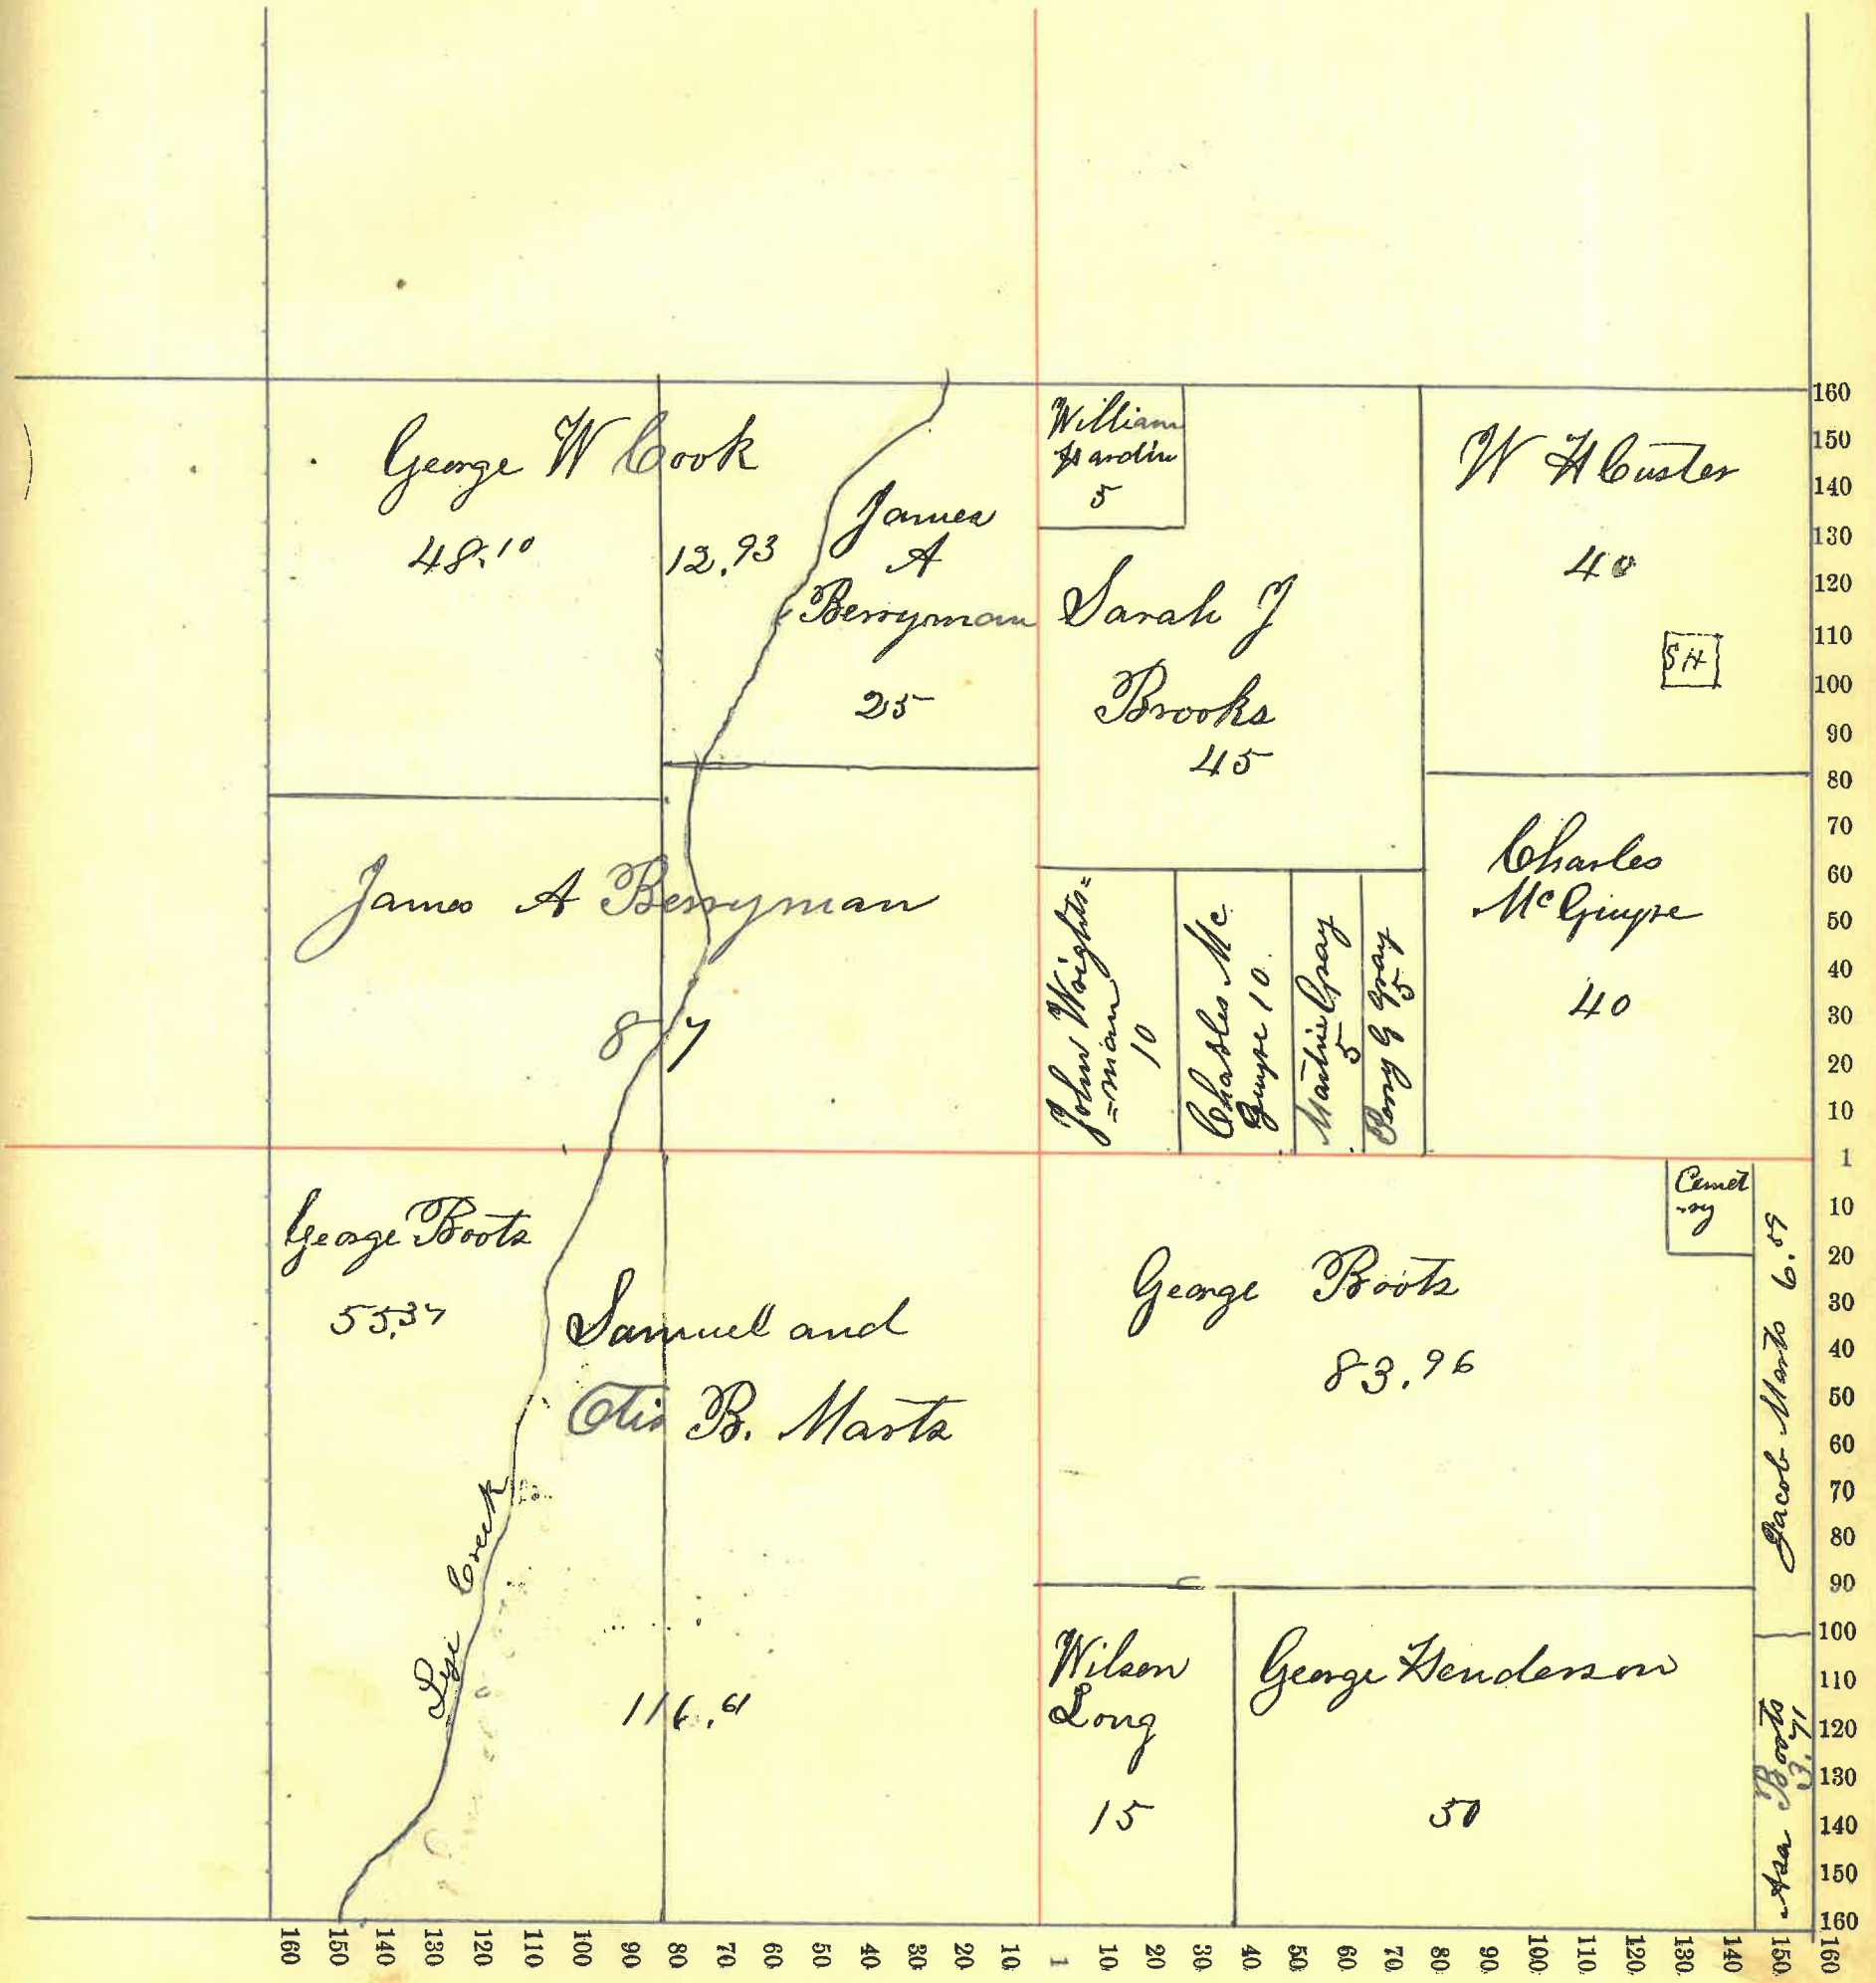 George W Cook
48.10
12.93
James
A
Berryman
25
William
Hardin
5
Sarah J
Brooks
45
W H Custer
40
S H
James A Berryman
87
John Wights=
=man
10
Charles Mc
Guyre 10
Gray
5
Perry G Gray
5
Charles
McGuyre
40
George Boots
55.37
Samuel and
Otis B. Marts
116.61
Lye Creek
George Boots
83.96
Cemet
-ry
Jacob Marts 6.59
Wilson
Long
15
George Henderson
50
Asa Boots
3.71
160
150
140
130
120
110
100
90
80
70
60
50
40
30
20
10
1
10
20
30
40
50
60
70
80
90
100
110
120
130
140
150
160
160 150 140 130 120 110 100 90 80 70 60 50 40 30 20 10 1 10 20 30 40 50 60 70 80 90 100 110 120 130 140 150 160